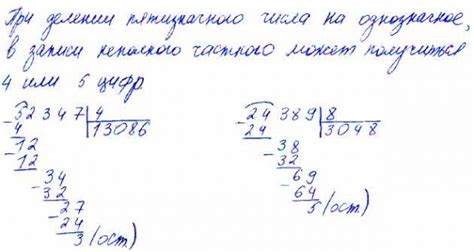 При делении пятизначного числа на однозначное,
в записи неполного частного может получиться
4 или 5 цифр.
52347 | 4
13086
- 4
12
- 12
34
- 32
27
- 24
3 (ост)
24389 | 8
3048
- 24
38
- 32
69
- 64
5 (ост)